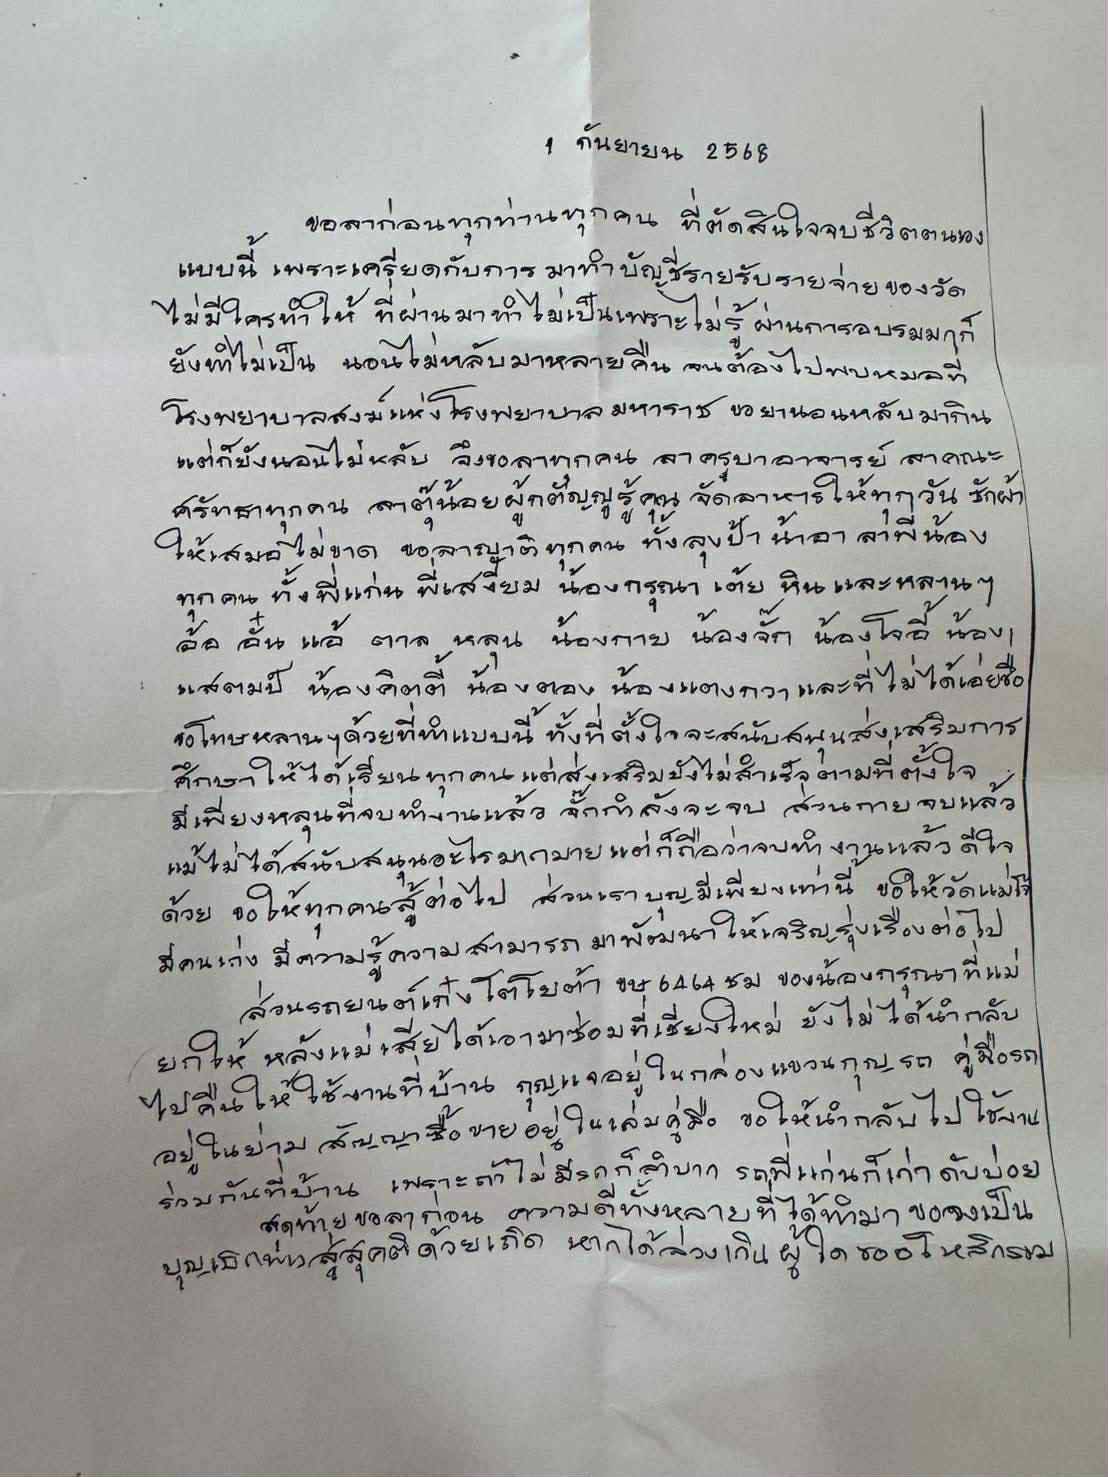 1 กันยายน 2568
ขอลาก่อนทุกท่านทุกคน ที่ตัดสินใจจบชีวิตตนเอง
แบบนี้ เพราะเครียดกับการมาทำบัญชีรายรับรายจ่ายของวัด
ไม่มีใครทำให้ ที่ผ่านมาทำไม่เป็นเพราะไม่รู้ ผ่านการอบรมมาก็
ยังทำไม่เป็น นอนไม่หลับมาหลายคืน จนต้องไปพบหมอที่
โรงพยาบาลสงฆ์แห่งโรงพยาบาลมหาราช ขอยานอนหลับมากิน
แต่ก็ยังนอนไม่หลับ จึงขอลาทุกคน ลาครูบาอาจารย์ ลาคณะ
ศรัทธาทุกคน ลาตุ๊น้อยผู้กตัญญูรู้คุณ จัดอาหารให้ทุกวัน ซักผ้า
ให้เสมอไม่ขาด ขอลาญาติทุกคน ทั้งลุงป้า น้าอา ลาพี่น้อง
ทุกคน ทั้งพี่แก่น พี่เสงี่ยม น้องกรุณา เต้ย หินและหลานๆ
อ้อ อั๋น แอ้ ตาล หลุน น้องกาย น้องจั๊ก น้องโจอี้ น้อง
แสตมป์ น้องคิตตี้ น้องตอง น้องแตงกวา และที่ไม่ได้เอ่ยชื่อ
ขอโทษหลานๆด้วยที่ทำแบบนี้ ทั้งที่ตั้งใจจะสนับสนุนส่งเสริมการ
ศึกษาให้ได้เรียนทุกคน แต่ส่งเสริมยังไม่สำเร็จตามที่ตั้งใจ
มีเพียงหลุนที่จบทำงานแล้ว จั๊กกำลังจะจบ ส่วนกายจบแล้ว
แม้ไม่ได้สนับสนุนอะไรมากมายแต่ก็ถือว่าจบทำงานแล้ว ดีใจ
ด้วย ขอให้ทุกคนสู้ต่อไป ส่วนเราบุญมีเพียงเท่านี้ ขอให้วัดแม่โจ้
มีคนเก่ง มีความรู้ความสามารถ มาพัฒนาให้เจริญรุ่งเรืองต่อไป
ส่วนรถยนต์เก๋งโตโยต้า ขษ 6464 ชม ของน้องกรุณาที่แม่
ยกให้ หลังแม่เสียได้เอามาซ่อมที่เชียงใหม่ ยังไม่ได้นำกลับ
ไปคืนให้ใช้งานที่บ้าน กุญแจอยู่ในกล่องแขวนกุญรถ คู่มือรถ
อยู่ในย่าม สัญญาซื้อขายอยู่ในเล่มคู่มือ ขอให้นำกลับไปใช้งาน
ร่วมกันที่บ้าน เพราะถ้าไม่มีรถก็ลำบาก รถพี่แก่นก็เก่า ดับบ่อย
สุดท้ายขอลาก่อน ความดีทั้งหลายที่ได้ทำมา ขอจงเป็น
บุญ สู่สุคติด้วยเถิด หากได้ล่วงเกินผู้ใด ขออโหสิกรรม